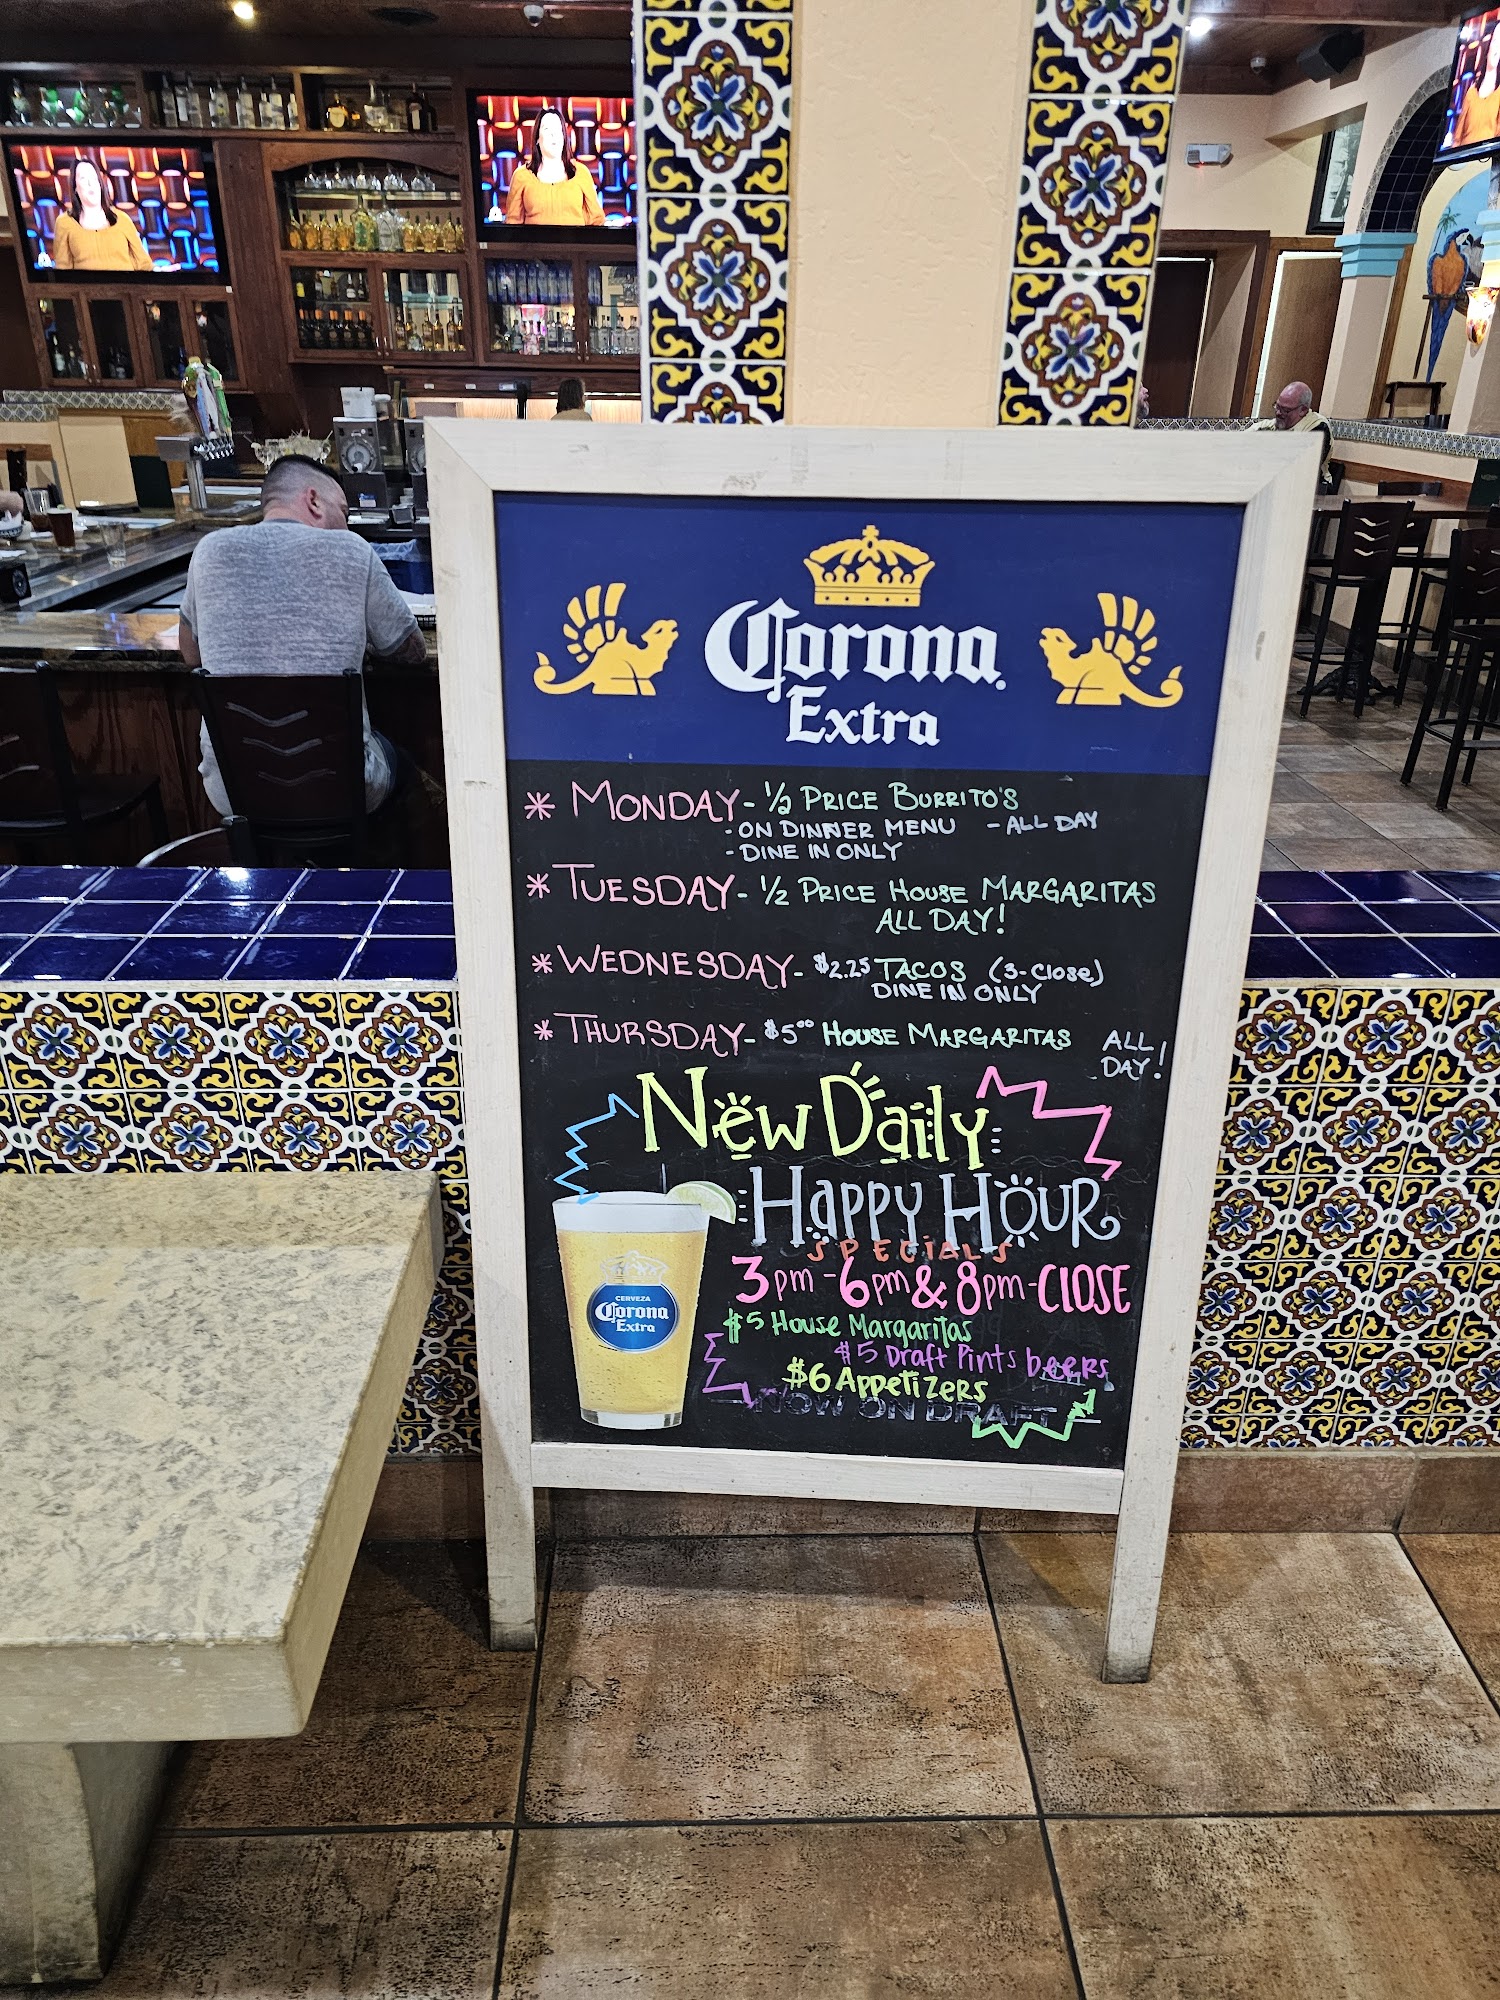 Corona
Extra
* MONDAY - 1/2 PRICE BURRITO'S
- ON DINNER MENU - ALL DAY
- DINE IN ONLY
* TUESDAY - 1/2 PRICE HOUSE MARGARITAS
ALL DAY!
* WEDNESDAY - $2.25 TACOS (3-Close)
DINE IN ONLY
* THURSDAY - $5.00 HOUSE MARGARITAS ALL DAY!
New Daily
Happy Hour
SPECIALS
3pm - 6pm & 8pm - CLOSE
$5 House Margaritas
$5 Draft Pints beers
$6 Appetizers
NOW ON DRAFT
CERVEZA
Corona
Extra